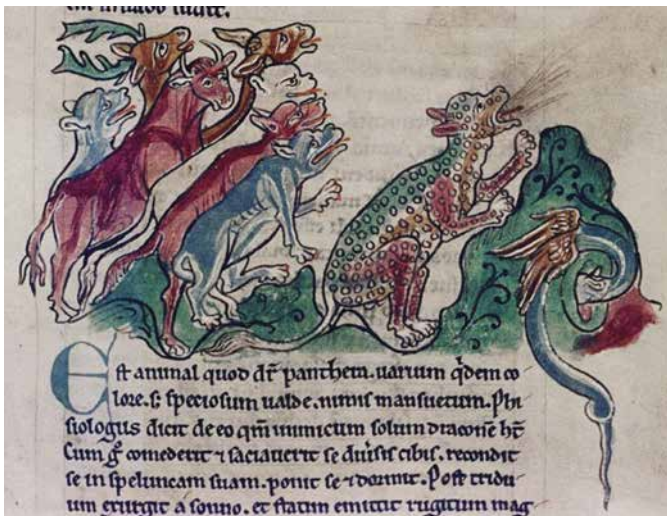 Est animal quod dr̄ panthera. uarium qͥdem co
lore. s; speciosum ualde. nimis mansuetum. Phi
siologus dicit de eo qm̄ inimicum solum draconē ht̄
Cum gͦ comederit ⁊ saciauerit se diu̾sis cibis. recondit
se in speluncam suam. ponit se ⁊ dormit. Post tridu
um exurgit a sonno. et statim emittit rugitum mag